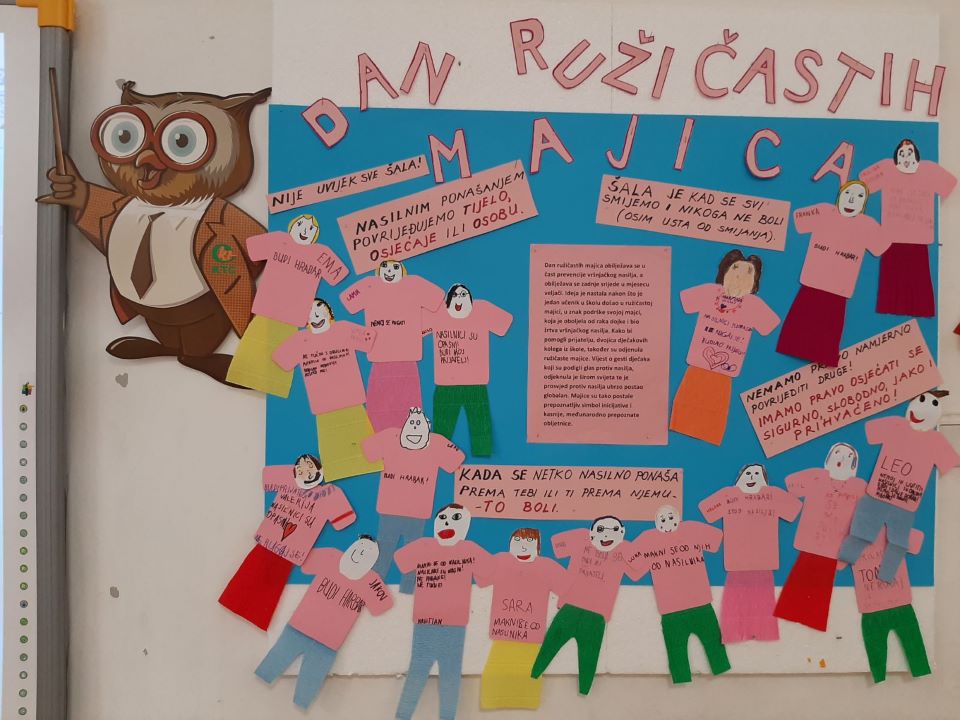 DAN RUŽIČASTIH
MAJICA
NIJE UVIJEK SVE ŠALA!
NASILNIM PONAŠANJEM
POVRIJEĐUJEMO TIJELO,
OSJEĆAJE ILI OSOBU.
ŠALA JE KAD SE SVI
SMIJEMO I NIKOGA NE BOLI
(OSIM USTA OD SMIJANJA).
Dan ružičastih majica obilježava se u
čast prevencije vršnjačkog nasilja, a
obilježava se zadnje srijede u mjesecu
veljači. Ideja je nastala nakon što je
jedan učenik u školu došao u ružičastoj
majici, u znak podrške svojoj majci,
koja je oboljela od raka dojke i bio
žrtva vršnjačkog nasilja. Kako bi
pomogli prijatelju, dvojica dječakovih
kolega iz škole, također su odjenula
ružičaste majice. Vijest o gesti dječaka
koji su podigli glas protiv nasilja,
odjeknula je širom svijeta te je
prosvjed protiv nasilja ubrzo postao
globalan. Majice su tako postale
prepoznatljiv simbol inicijative i
kasnije, međunarodno prepoznate
obljetnice.
NEMAMO PRAVO NAMJERNO
POVRIJEDITI DRUGE!
IMAMO PRAVO OSJEĆATI SE
SIGURNO, SLOBODNO, JAKO I
PRIHVAĆENO!
KADA SE NETKO NASILNO PONAŠA
PREMA TEBI ILI TI PREMA NJEMU-
-TO BOLI.
EMA
BUDI HRABAR
LANA
NEMOJ SE
NASILNICI SU
OPASNI
BUDI MOJ
PRIJATELJ
FRANKA
BUDI
HRABAR!
BUDI HRABAR!
NASILNICI SU
OPASNI
BUDI HRABAR
JAKOV
SARA
MAKNI SE OD
NASILNIKA
MAKNI SE OD NJIH
OD NASILNIKA
BUDI HRABAR!
STOP NASILJU!
LEO